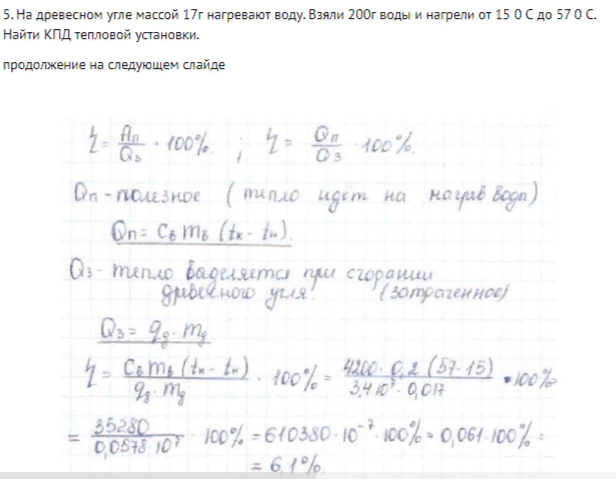 5. На древесном угле массой 17г нагревают воду. Взяли 200г воды и нагрели от 15 0 С до 57 0 С.
Найти КПД тепловой установки.
продолжение на следующем слайде
η = Aп/Qз · 100%. ; η = Qп/Qз · 100%.
Qп - полезное ( тепло идёт на нагрев воды)
Qп = Cв mв (tк - tн).
Qз - тепло выделяется при сгорании
древесного угля. (затраченное)
Qз = qд · mд
η = Cв mв (tк - tн)/qд · mд · 100% = 4200 · 0,2 (57-15)/3,4 · 10⁷ · 0,017 · 100% =
= 35280/0,0578 · 10⁷ · 100% = 610380 · 10⁻⁷ · 100% = 0,061 · 100% =
= 6,1%.